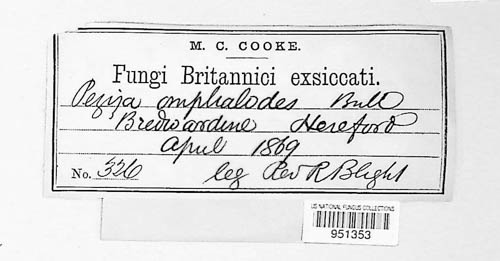 M. C. COOKE.
Fungi Britannici exsiccati.
Peziza omphalodes Bull
Bredwardine Hereford
April 1869
No. 326 leg Rev R Blight
US NATIONAL FUNGUS COLLECTIONS
951353